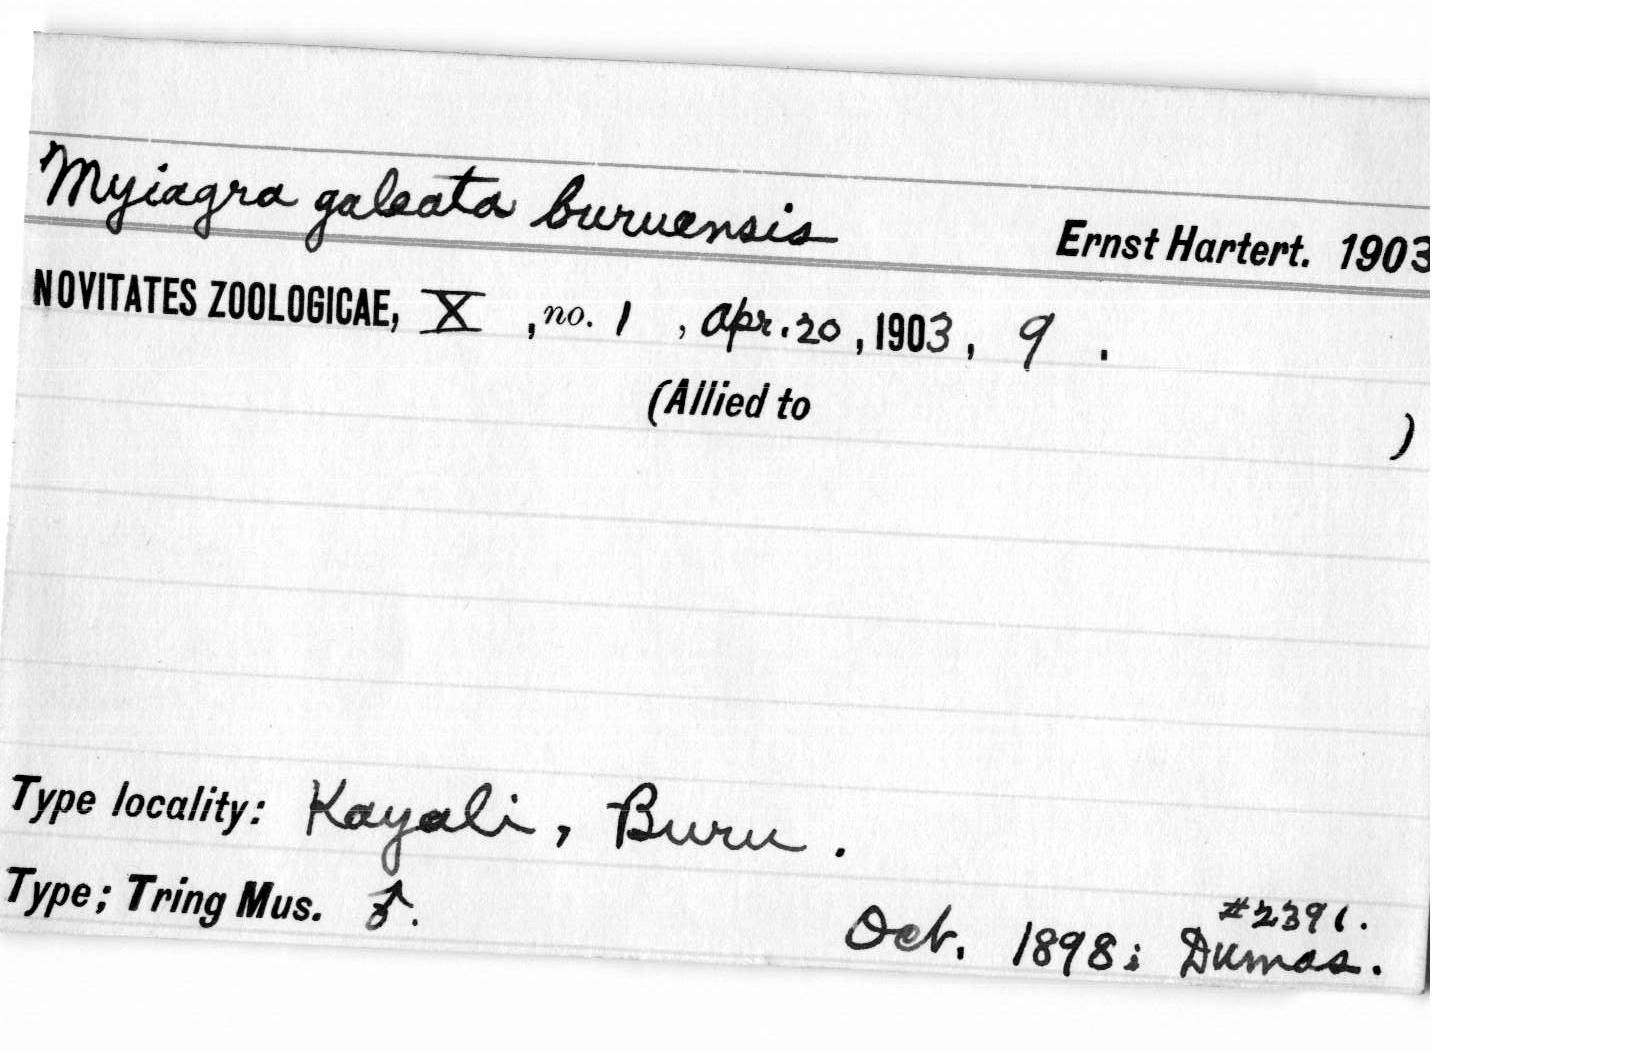 Myiagra galeata buruensis Ernst Hartert. 1903
NOVITATES ZOOLOGICAE, X, no. 1, Apr. 20, 1903, 9.
(Allied to )
Type locality: Kayali, Buru.
Type; Tring Mus. ♂.
#2391.
Oct. 1898; Dumas.